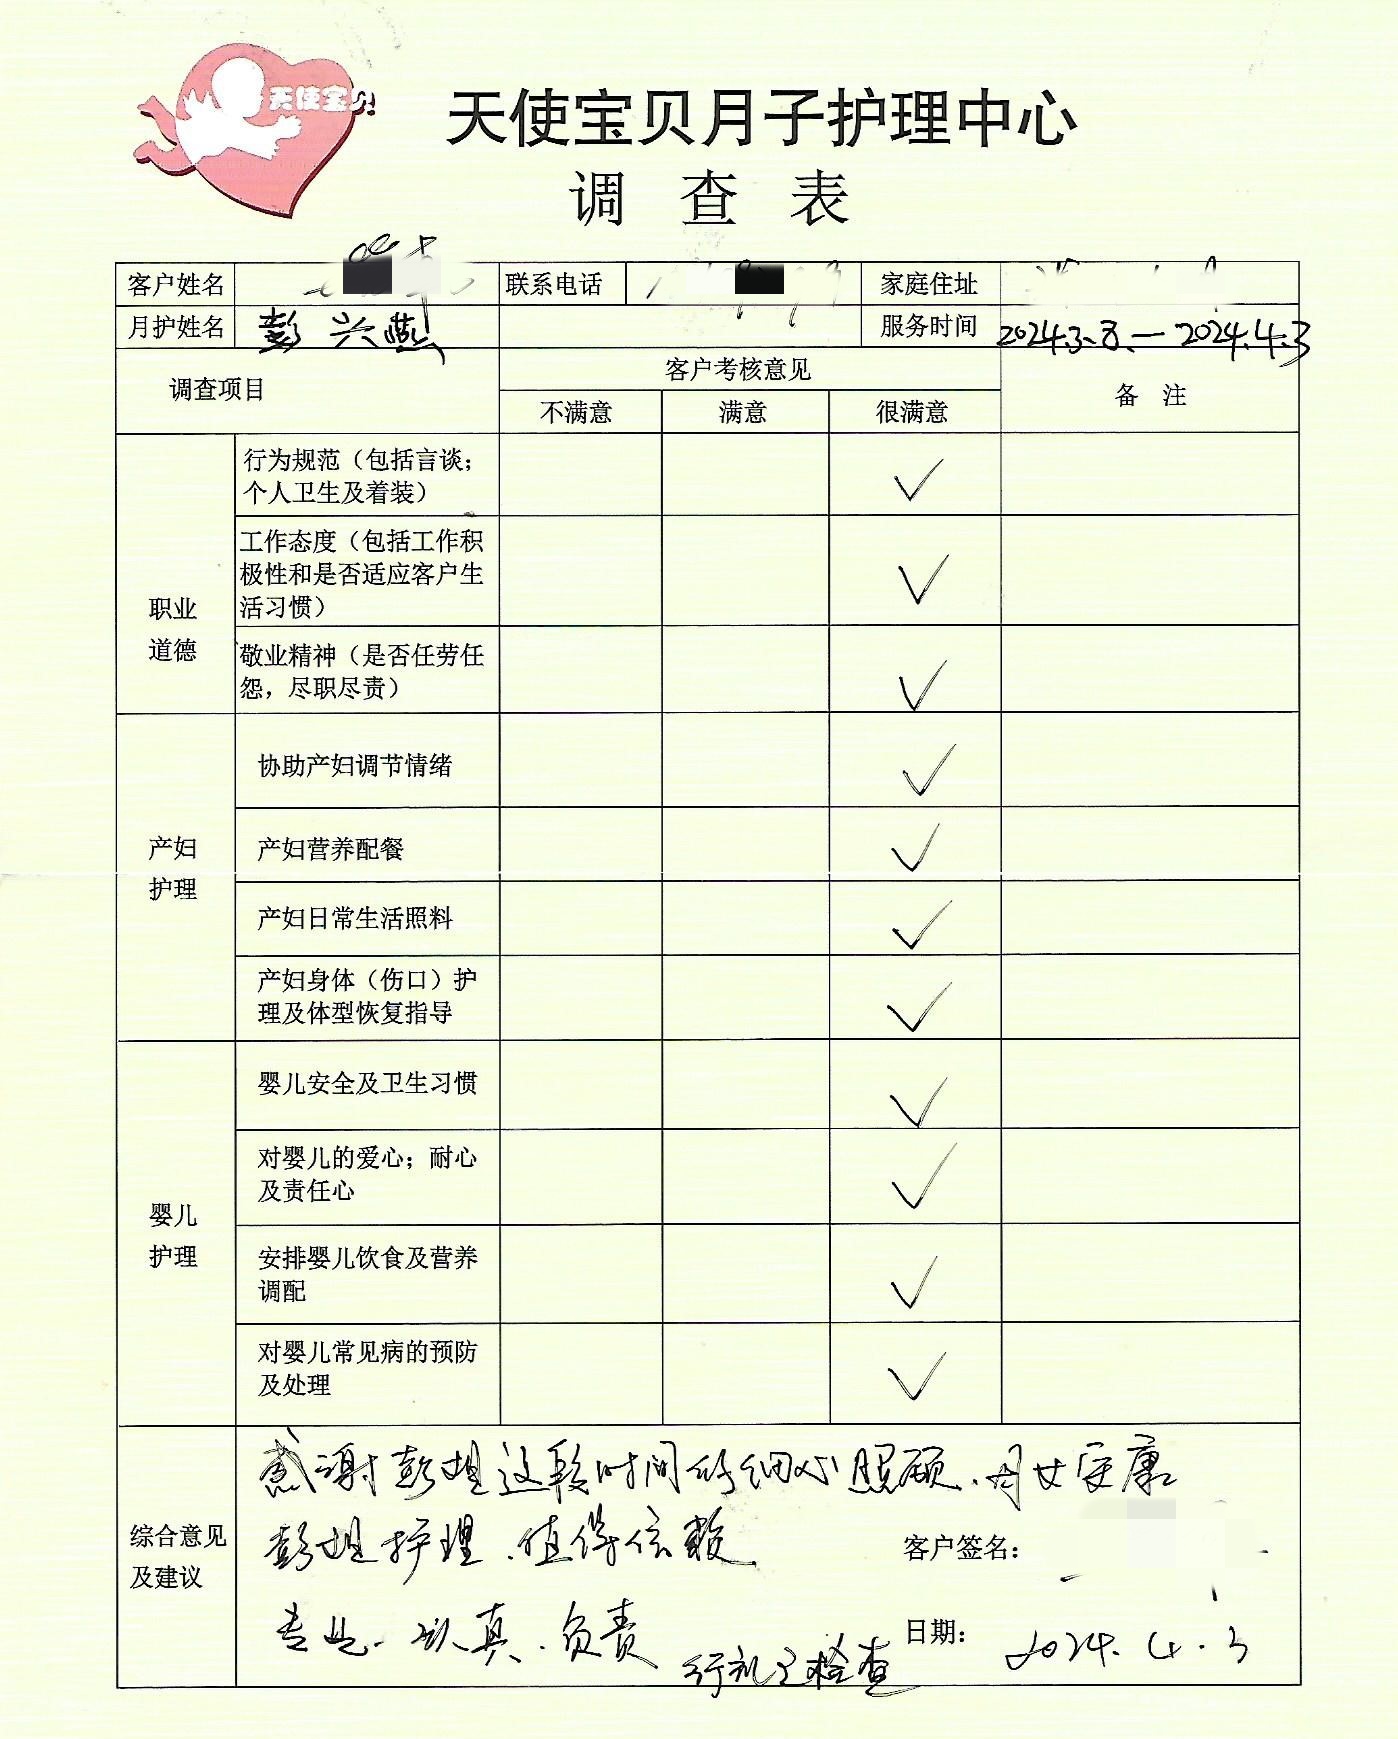 天使宝贝
天使宝贝月子护理中心
调 查 表
客户姓名 联系电话 家庭住址
月护姓名 彭兴燕 服务时间 2024.3.8.—2024.4.3
调查项目 客户考核意见 备 注
不满意 满意 很满意
职业
道德
行为规范（包括言谈；
个人卫生及着装） ✓
工作态度（包括工作积
极性和是否适应客户生
活习惯） ✓
敬业精神（是否任劳任
怨，尽职尽责） ✓
产妇
护理
协助产妇调节情绪 ✓
产妇营养配餐 ✓
产妇日常生活照料 ✓
产妇身体（伤口）护
理及体型恢复指导 ✓
婴儿
护理
婴儿安全及卫生习惯 ✓
对婴儿的爱心；耐心
及责任心 ✓
安排婴儿饮食及营养
调配 ✓
对婴儿常见病的预防
及处理 ✓
综合意见
及建议
感谢彭姐这段时间的细心照顾、母女安康
彭姐护理、值得信赖
客户签名：
专业、认真、负责
行礼已检查
日期： 2024.4.3